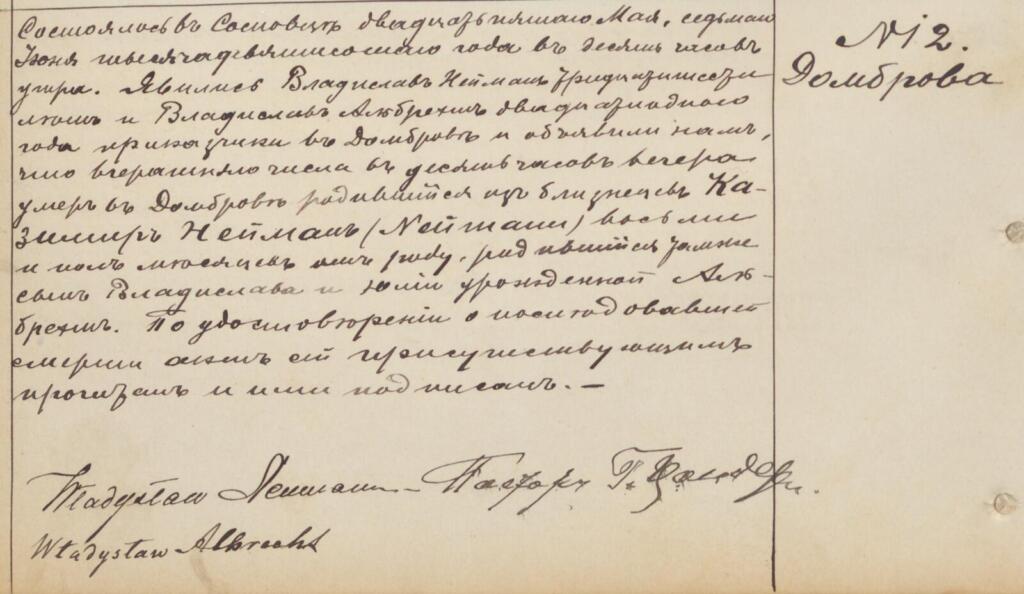 Состоялось въ Сосновцѣ двадцать пятаго Мая, седьмаго
Iюня тысяча девятисотаго года въ десять часовъ
утра. Явились Владиславъ Нейманъ тридцати шести
лѣтъ и Владиславъ Альбрехтъ двадцати одного
года приказчики въ Домбровѣ и объявили намъ,
что вчерашняго числа въ десять часовъ вечера
умеръ въ Домбровѣ родившiйся изъ близнецовъ Ка-
зимиръ Нейманъ (Neÿmann) восьми
и полъ мѣсяцевъ отъ роду, родившiйся тамже
сынъ Владислава и Юлiи урожденной Аль-
брехтъ. По удостовѣренiи о послѣдовавшей
смерти актъ сей присутствующимъ
прочитанъ и ими подписанъ. —
№ 12.
Домброва
Władysław Neumann Пасторъ Г.
Władysław Albrecht